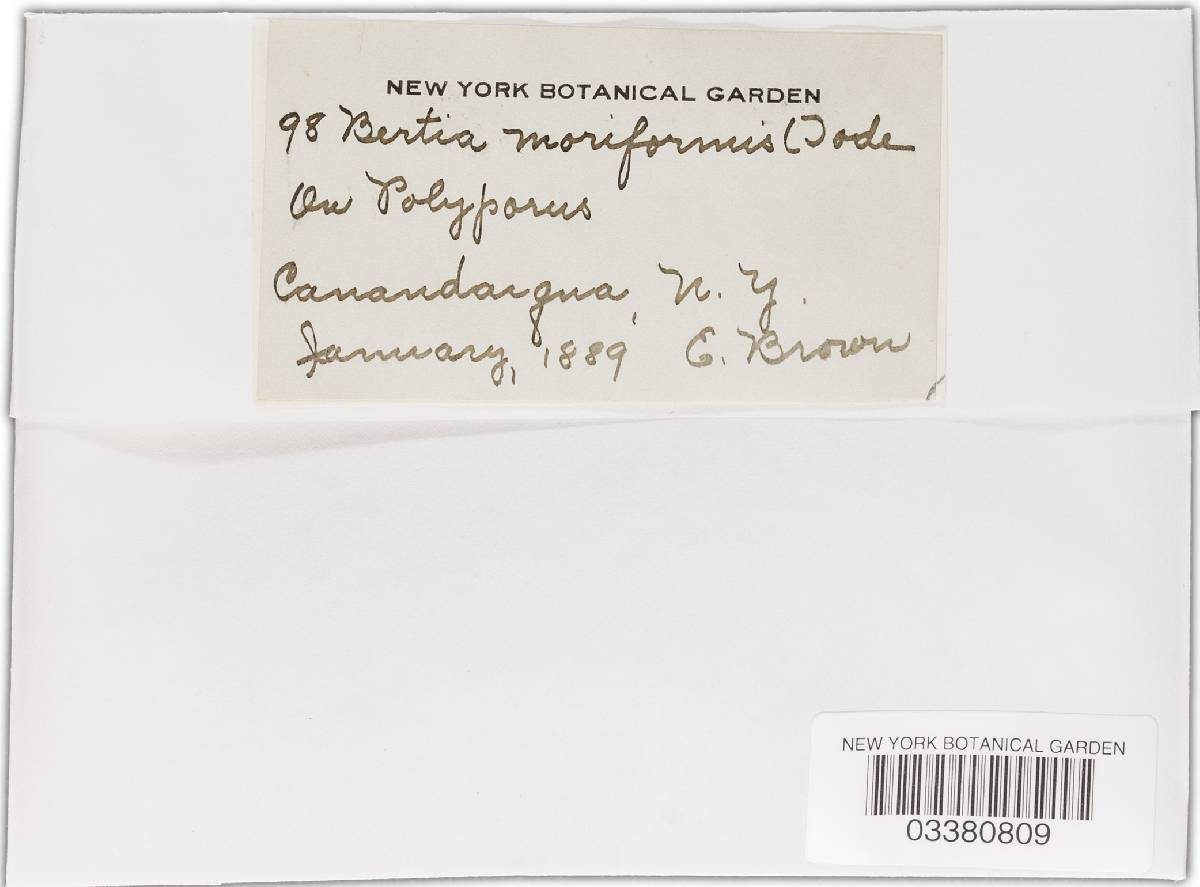 NEW YORK BOTANICAL GARDEN
98 Bertia moriformis (Tode
On Polyporus
Canandaigua, N. Y.
January, 1889 E. Brown
NEW YORK BOTANICAL GARDEN
03380809